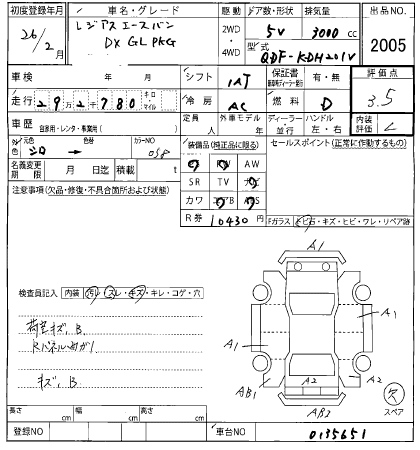 初度登録年月 車名・グレード 駆動 ドア数・形状 排気量 出品NO.
26/2月 レジアスエースバン DX GL PKG 2WD・4WD 5V 3000 cc 2005
型式 QDF-KDH201V
車検 年 月 シフト IAT 保証書 有・無 評価点
走行 292780 キロ・マイル 冷房 AC 燃料 D 3.5
車歴 自家用・レンタ・事業用( ) 定員 人 外車モデル 年 ディーラー・並行 ハンドル 左・右 内装評価 C
外色 元色 シロ → 色替 カラーNO 058
装備品(純正品に限る) セールスポイント(正常に作動するもの)
名義変更期限 月 日迄 積載 t
AW
SR TV
カワ
R券 10430円
注意事項(欠品・修復・不具合箇所および状態)
Fガラス トビ石・キズ・ヒビ・ワレ・リペア跡
検査員記入 内装 汚レ・スレ・キズ・キレ・コゲ・穴
荷室キズ、B
キズ、B
A1
A1 A1
AB1 A2 A2
AB3
欠 スペア
長さ cm 幅 cm 高さ cm
登録NO 車台NO 0135651